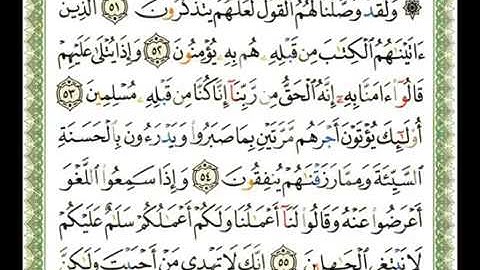 ۞ وَلَقَدْ وَصَّلْنَا لَهُمُ ٱلْقَوْلَ لَعَلَّهُمْ يَتَذَكَّرُونَ ٥١ ٱلَّذِينَ
ءَاتَيْنَٰهُمُ ٱلْكِتَٰبَ مِن قَبْلِهِۦ هُم بِهِۦ يُؤْمِنُونَ ٥٢ وَإِذَا يُتْلَىٰ عَلَيْهِمْ
قَالُوٓا۟ ءَامَنَّا بِهِۦٓ إِنَّهُ ٱلْحَقُّ مِن رَّبِّنَآ إِنَّا كُنَّا مِن قَبْلِهِۦ مُسْلِمِينَ ٥٣
أُو۟لَٰٓئِكَ يُؤْتَوْنَ أَجْرَهُم مَّرَّتَيْنِ بِمَا صَبَرُوا۟ وَيَدْرَءُونَ بِٱلْحَسَنَةِ
ٱلسَّيِّئَةَ وَمِمَّا رَزَقْنَٰهُمْ يُنفِقُونَ ٥٤ وَإِذَا سَمِعُوا۟ ٱللَّغْوَ
أَعْرَضُوا۟ عَنْهُ وَقَالُوا۟ لَنَآ أَعْمَٰلُنَا وَلَكُمْ أَعْمَٰلُكُمْ سَلَٰمٌ عَلَيْكُمْ
لَا نَبْتَغِى ٱلْجَٰهِلِينَ ٥٥ إِنَّكَ لَا تَهْدِى مَنْ أَحْبَبْتَ وَلَٰكِنَّ